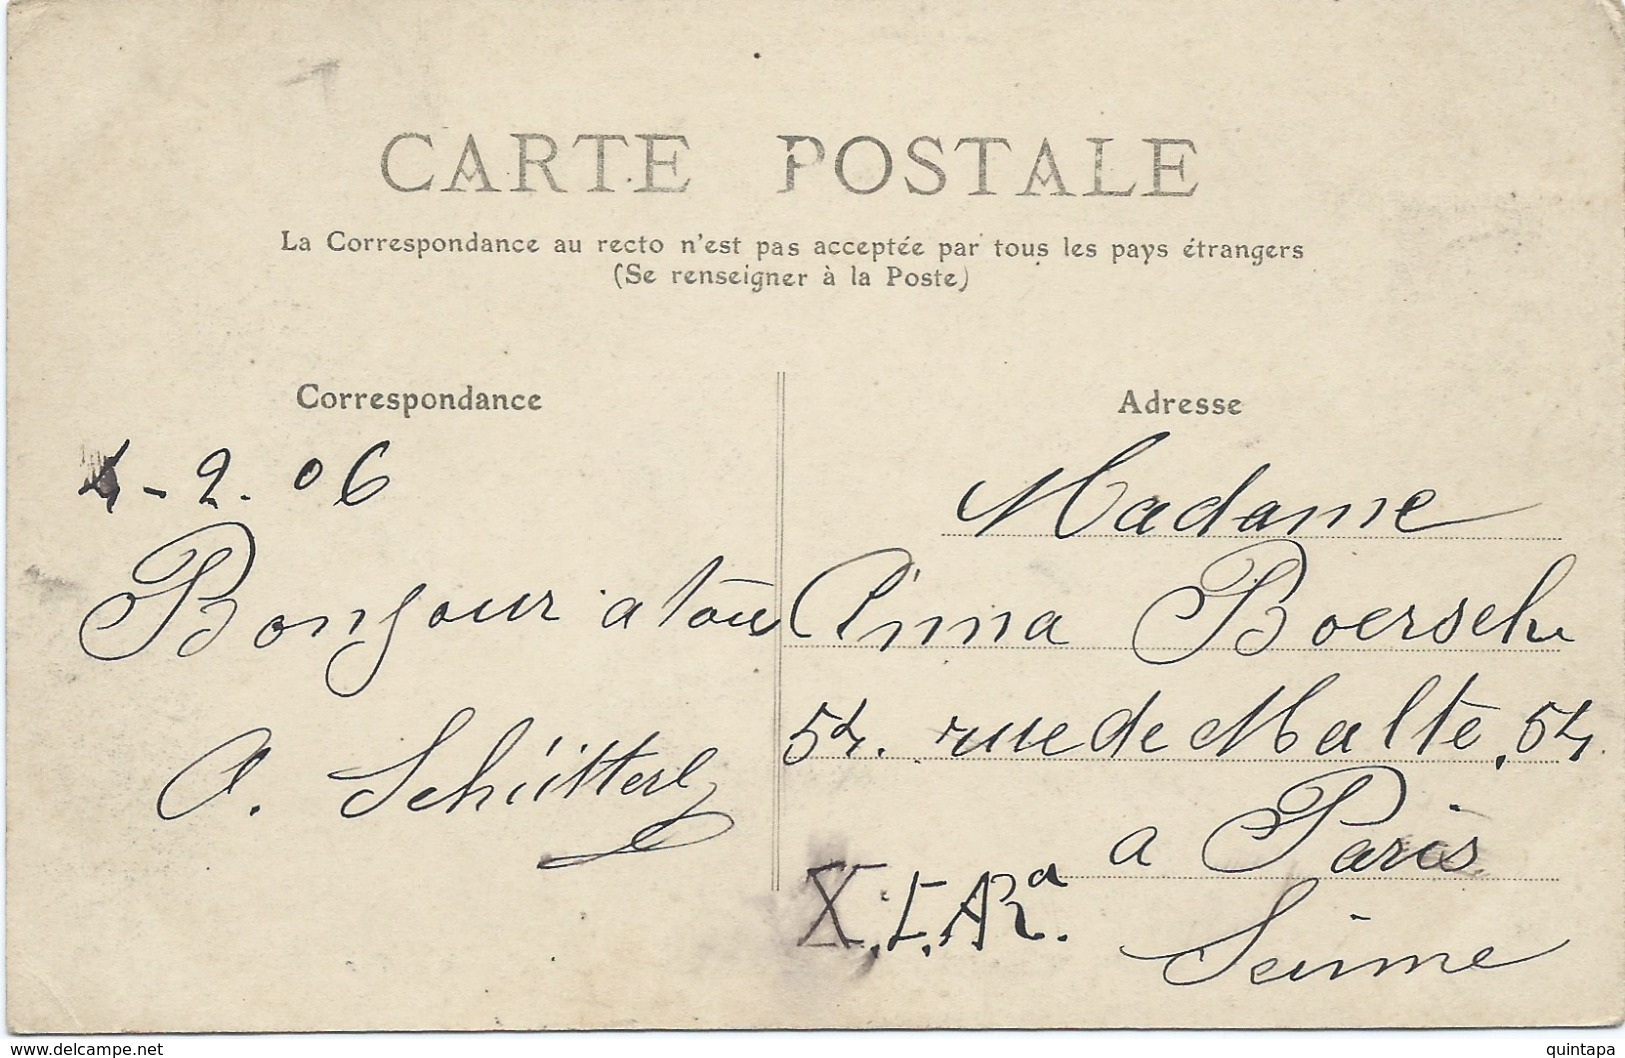 CARTE POSTALE
La Correspondance au recto n'est pas acceptée par tous les pays étrangers
(Se renseigner à la Poste)
Correspondance
4-2.06
Bonjour a tous
A.
Adresse
Madame
Anna Boersch
54. rue de Malte. 54
a Paris
Seinne
www.delcampe.net
quintapa